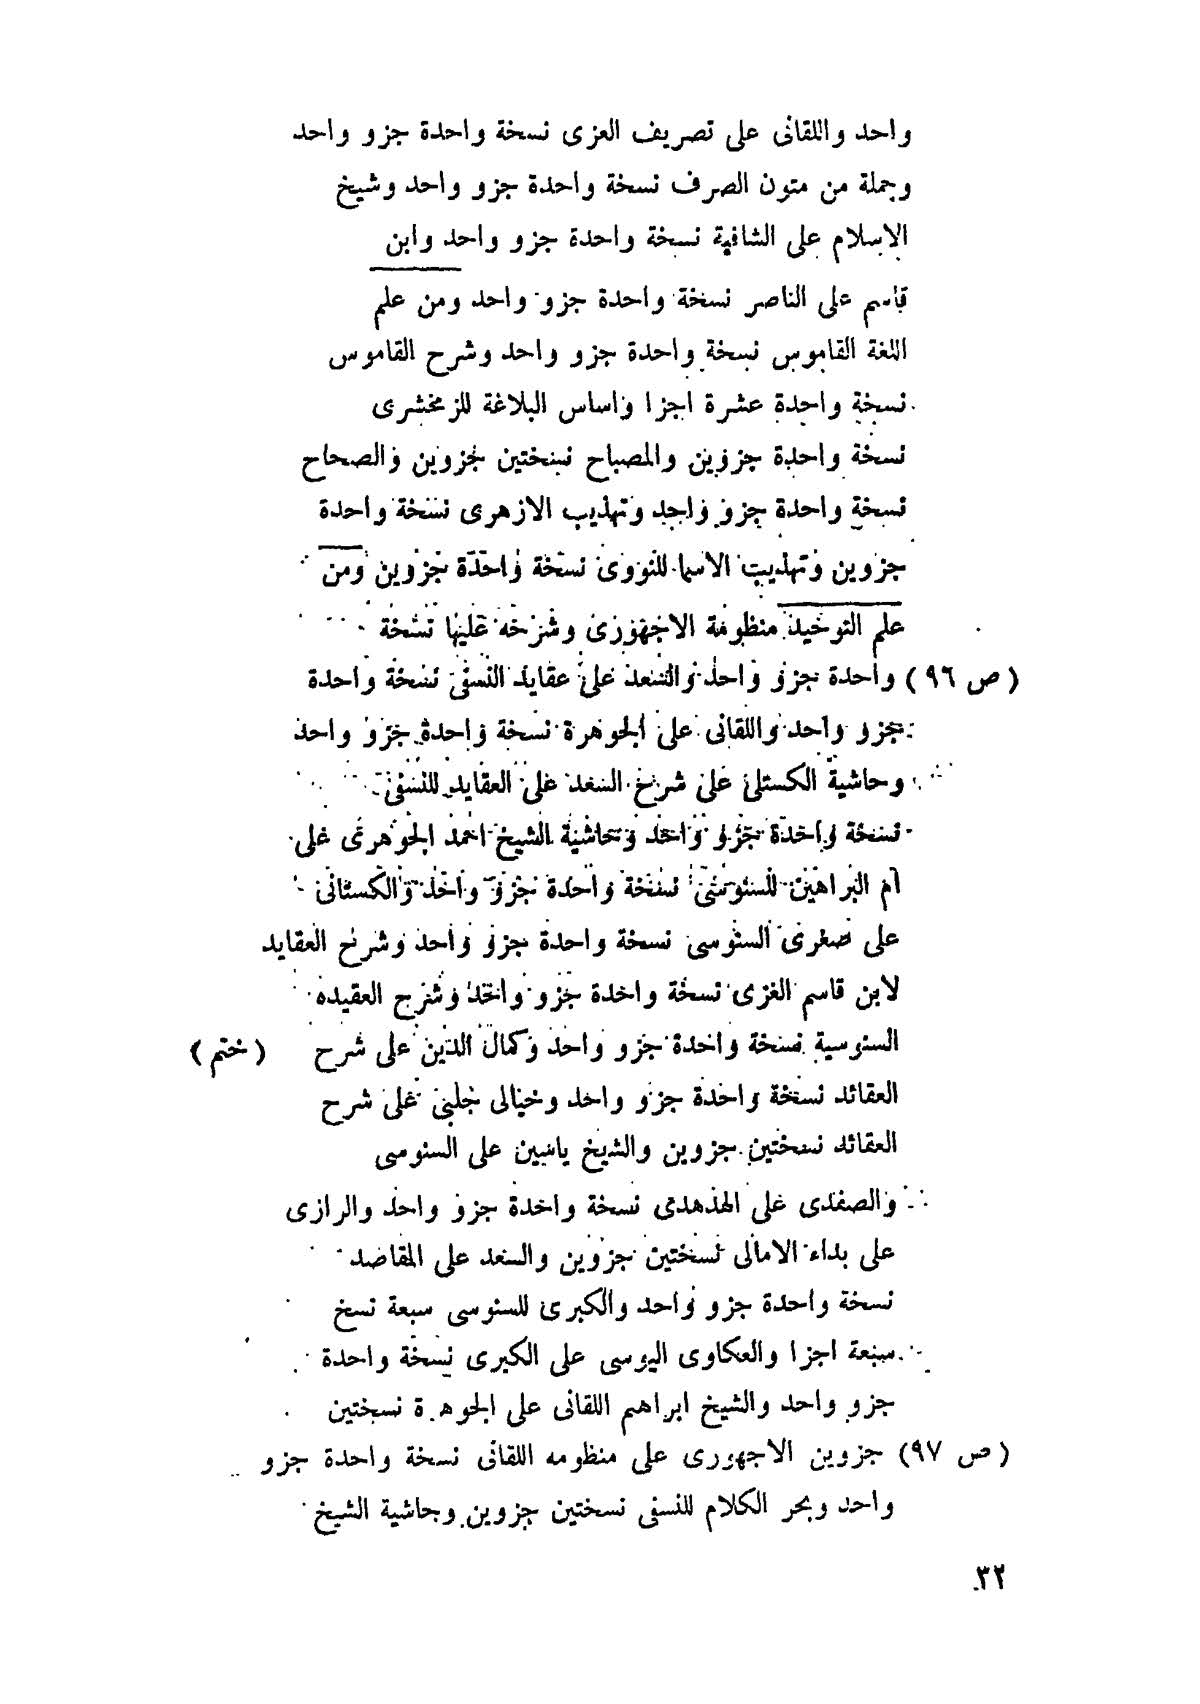 واحد واللقانى على تصريف العزى نسخة واحدة جزو واحد
وجملة من متون الصرف نسخة واحدة جزو واحد وشيخ
الاسلام على الشافية نسخة واحدة جزو واحد وابن
قاسم على الناصر نسخة واحدة جزو واحد ومن علم
اللغة القاموس نسخة واحدة جزو واحد وشرح القاموس
نسخة واحدة عشرة اجزا واساس البلاغة للزمخشرى
نسخة واحدة جزوين والمصباح نسختين جزوين والصحاح
نسخة واحدة جزو واحد وتهذيب الازهرى نسخة واحدة
جزوين وتهذيب الاسما للنووى نسخة واحدة جزوين ومن
علم التوحيد منظومة الاجهورى وشرحه عليها نسخة
(ص ٩٦) واحدة جزو واحد والسعد على عقايد النسفى نسخة واحدة
جزو واحد واللقانى على الجوهرة نسخة واحدة جزو واحد
وحاشية الكستلى على شرح السعد على العقايد للنسفى
نسخة واحدة جزو واحد وحاشية الشيخ احمد الجوهرى على
ام البراهين للسنوسى نسخة واحدة جزو واحد والكستانى
على صغرى السنوسى نسخة واحدة جزو واحد وشرح العقايد
لابن قاسم الغزى نسخة واحدة جزو واحد وشرح العقيده
السنوسية نسخة واحدة جزو واحد وكمال الدين على شرح (ختم)
العقائد نسخة واحدة جزو واحد وخيالى جلبى على شرح
العقائد نسختين جزوين والشيخ ياسين على السنوسى
والصفدى على الهدهدى نسخة واحدة جزو واحد والرازى
على بداء الامالى نسختين جزوين والسعد على المقاصد
نسخة واحدة جزو واحد والكبرى للسنوسى سبعة نسخ
سبعة اجزا والعكاوى اليوسى على الكبرى نسخة واحدة
جزو واحد والشيخ ابراهم اللقانى على الجوهرة نسختين
(ص ٩٧) جزوين الاجهورى على منظومه اللقانى نسخة واحدة جزو
واحد وبحر الكلام للنسفى نسختين جزوين وحاشية الشيخ
٣٢